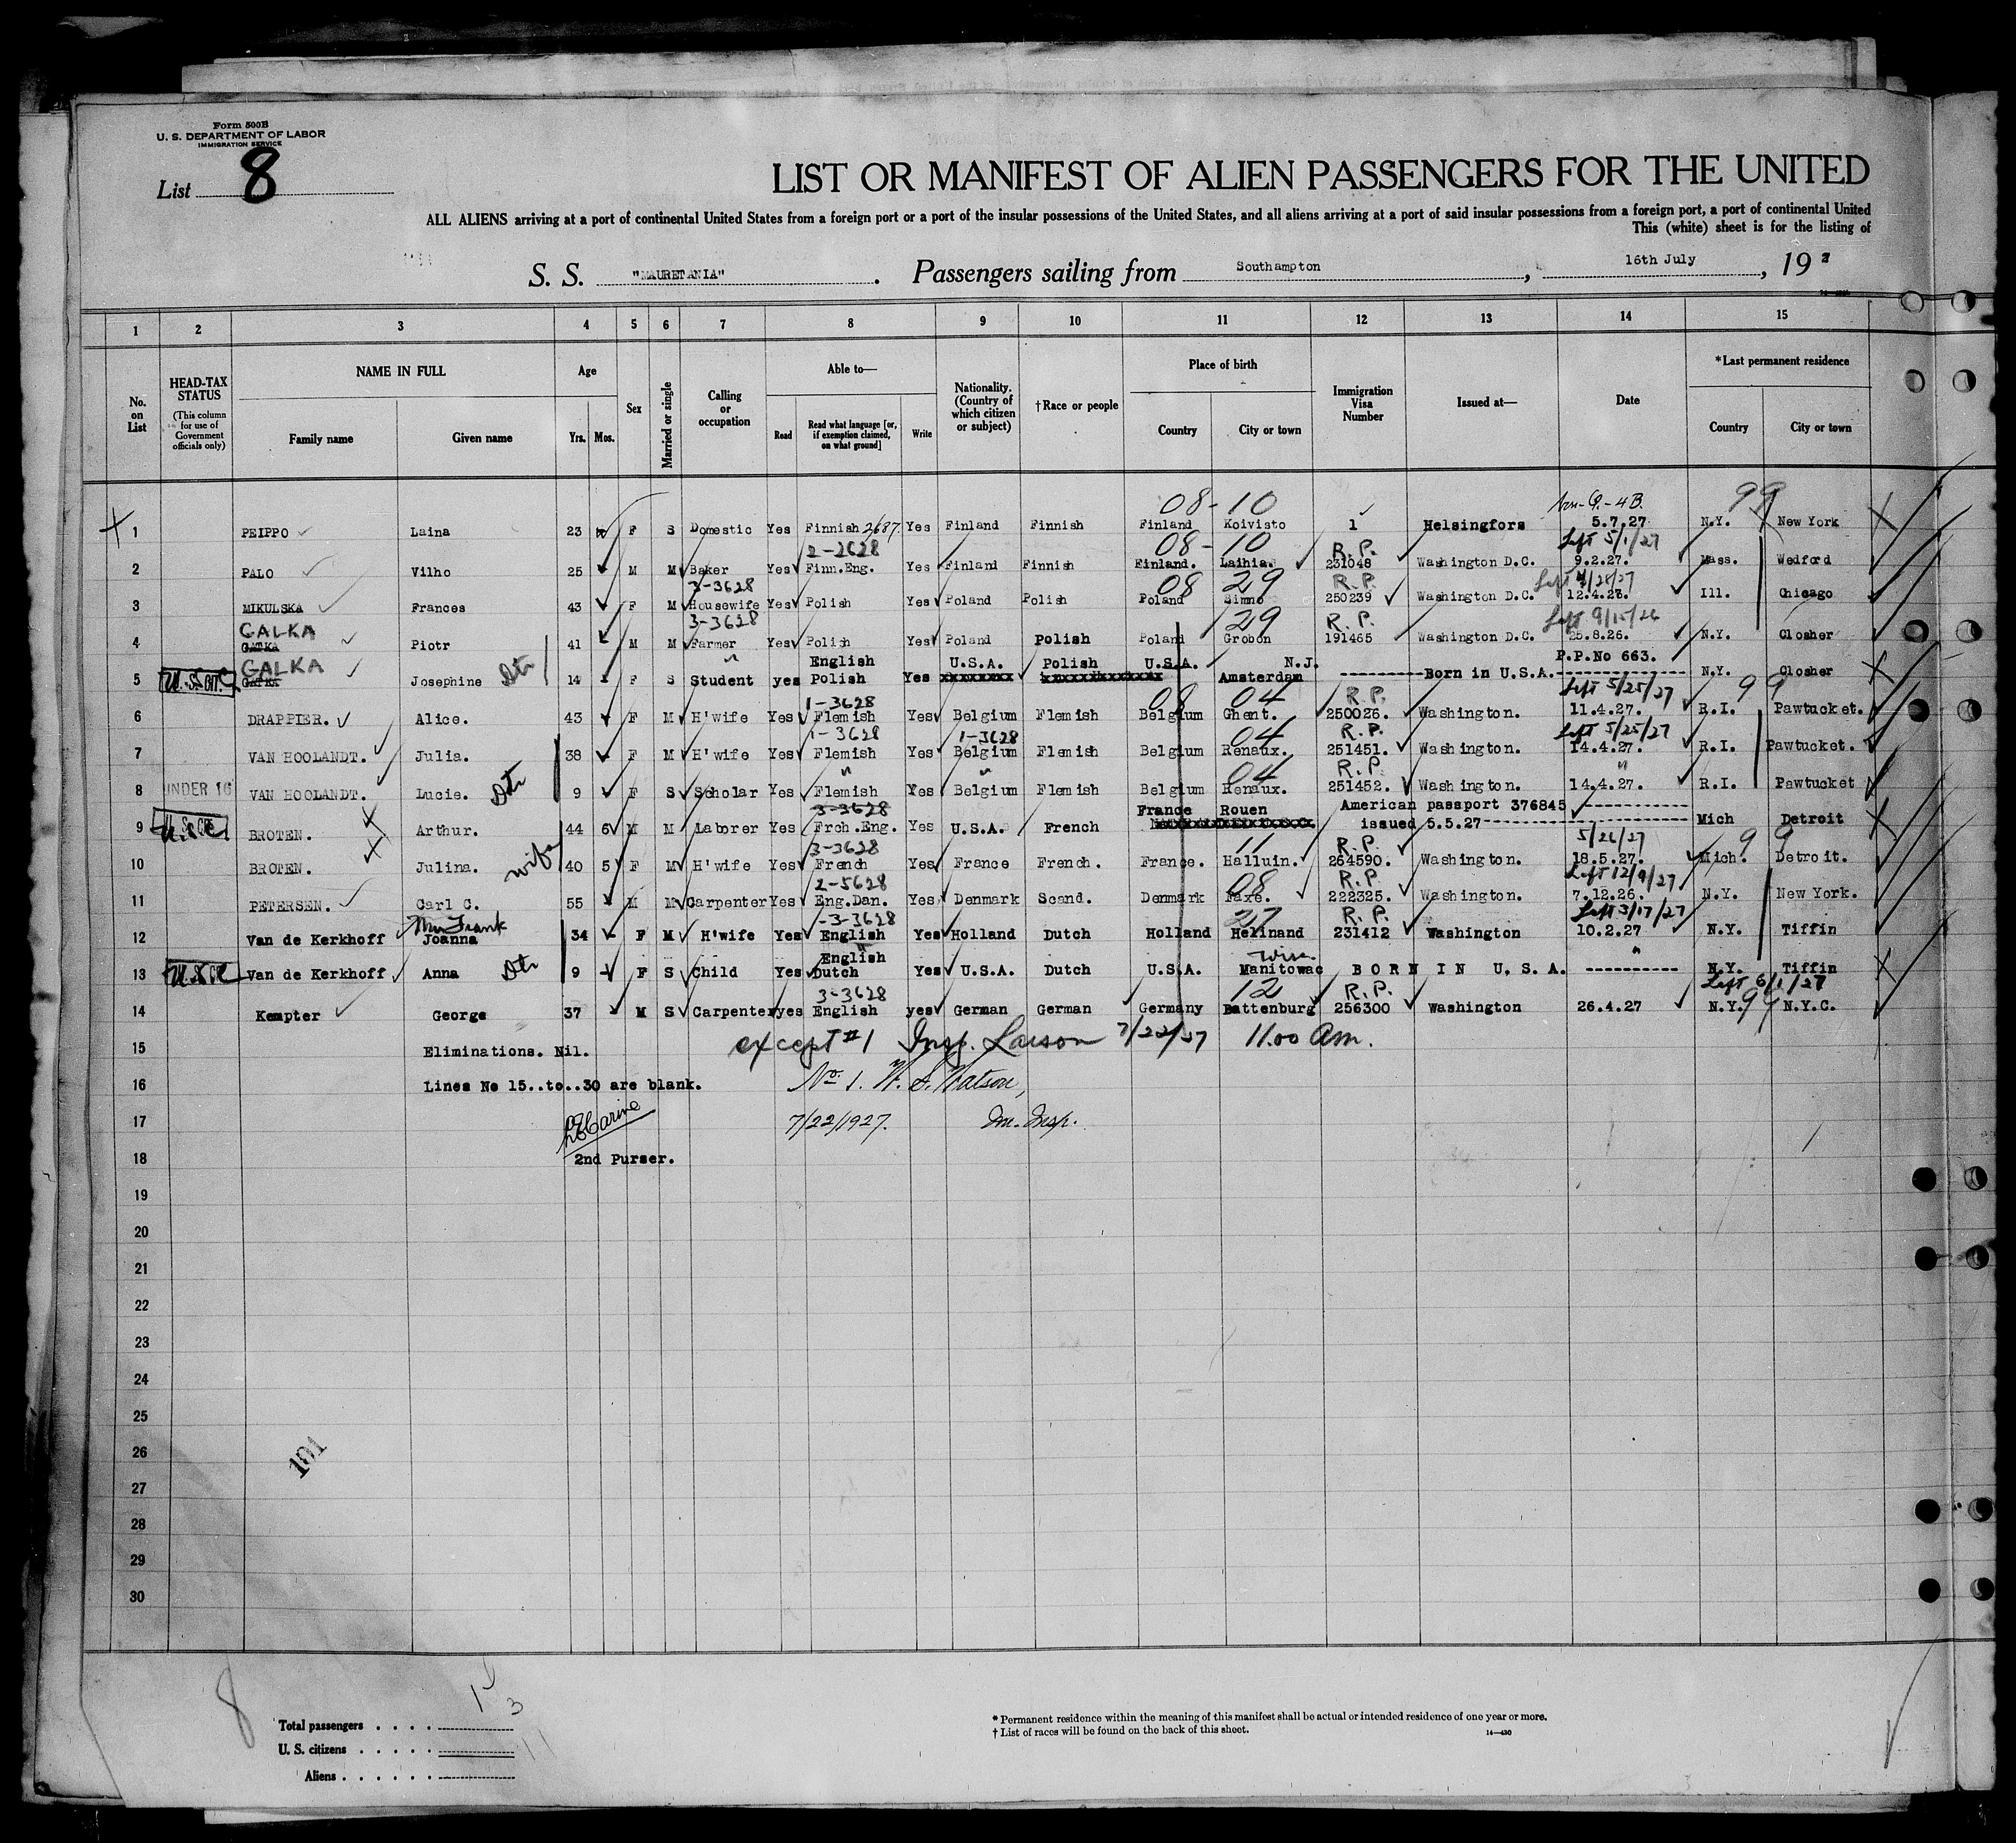 Form 500B
U. S. DEPARTMENT OF LABOR
IMMIGRATION SERVICE
List 8
LIST OR MANIFEST OF ALIEN PASSENGERS FOR THE UNITED
ALL ALIENS arriving at a port of continental United States from a foreign port or a port of the insular possessions of the United States, and all aliens arriving at a port of said insular possessions from a foreign port, a port of continental United
This (white) sheet is for the listing of
S. S. "MAURETANIA". Passengers sailing from Southampton, 16th July, 19
1 2 3 4 5 6 7 8 9 10 11 12 13 14 15
No. on List HEAD-TAX STATUS (This column for use of Government officials only) NAME IN FULL Family name Given name Age Yrs. Mos. Sex Married or single Calling or occupation Able to— Read Read what language [or, if exemption claimed, on what ground] Write Nationality. (Country of which citizen or subject) †Race or people Place of birth Country City or town Immigration Visa Number Issued at— Date *Last permanent residence Country City or town
08-10 99
1 PEIPPO Laina 23 F S Domestic Yes Finnish 2687 Yes Finland Finnish Finland Koivisto 1 Helsingfors 5.7.27. N.Y. New York
2-2628 08-10 R.P. Left 5/1/27
2 PALO Vilho 25 M M Baker Yes Finn.Eng. Yes Finland Finnish Finland. Laihia. 231048 Washington D.C. 9.2.27. Mass. Wedford
3-3628 08 29 R.P. Left 4/28/27
3 MIKULSKA Frances 43 F M Housewife Yes Polish Yes Poland Polish Poland Simno 250239 Washington D.C. 12.4.26. Ill. Chicago
GALKA 3-3628 29 R.P. Left 9/15/26
4 GATKA Piotr 41 M M Farmer Yes Polish Yes Poland Polish Poland Grobon 191465 Washington D.C. 25.8.26. N.Y. Closher
GALKA " English U.S.A. Polish U.S.A. N.J. P.P.No 663.
5 U.S. CIT. GATKA Josephine Dtr 14 F S Student yes Polish Yes xxxxxxxx xxxxxxxxxxxxx Amsterdam --------Born in U.S.A.------------- N.Y. Closher
1-3628 08 04 R.P. Left 5/25/27 99
6 DRAPPIER. Alice. 43 F M H'wife Yes Flemish Yes Belgium Flemish Belgium Ghent. 250026. Washington. 11.4.27. R.I. Pawtucket.
1-3628 1-3628 04 R.P. Left 5/25/27
7 VAN HOOLANDT. Julia. 38 F M H'wife Yes Flemish Yes Belgium Flemish Belgium Renaux. 251451. Washington. 14.4.27. R.I. Pawtucket.
" " 04 R.P. "
8 UNDER 16 VAN HOOLANDT. Lucie. Dtr 9 F S Scholar Yes Flemish Yes Belgium Flemish Belgium Renaux. 251452. Washington. 14.4.27. R.I. Pawtucket
3-3628 France Rouen American passport 376845 -----------
9 BROTEN. Arthur. 44 6 M M Laborer Yes Frch.Eng. Yes U.S.A. French issued 5.5.27--------------------- Mich Detroit
3-3628 11 R.P. 5/26/27 99
10 BROTEN. Julina. wife 40 5 F M H'wife Yes French Yes France French. France. Halluin. 264590. Washington. 18.5.27. Mich. Detroit.
2-5628 08 R.P. Left 12/9/27
11 PETERSEN. Carl C. 55 M M Carpenter Yes Eng.Dan. Yes Denmark Scand. Denmark Faxe. 222325. Washington. 7.12.26. N.Y. New York.
Mrs Frank -3-3628 27 R.P. Left 3/17/27
12 Van de Kerkhoff Joanna 34 - F M H'wife Yes English Yes Holland Dutch Holland Helinand 231412 Washington 10.2.27 N.Y. Tiffin
English Wisc. "
13 Van de Kerkhoff Anna Dtr 9 - F S Child Yes Dutch Yes U.S.A. Dutch U.S.A. Manitowac BORN IN U.S.A. ---------- N.Y. Tiffin
3-3628 12 R.P. Left 6/1/27
14 Kempter George 37 M S Carpenter yes English yes German German Germany Battenburg 256300 Washington 26.4.27 N.Y. 99 N.Y.C.
15 Eliminations. Nil. except #1 Insp. Larson 7/22/27 11.00 am.
16 Lines No 15..to..30 are blank. No. 1. W. S. Watson,
17 7/22/1927. Im. Insp.
18 2nd Purser.
19
20
21
22
23
24
25
26
101
27
28
29
30
8
Total passengers . . . .
U. S. citizens . . . . .
Aliens . . . . . .
3
11
* Permanent residence within the meaning of this manifest shall be actual or intended residence of one year or more.
† List of races will be found on the back of this sheet.
14—430